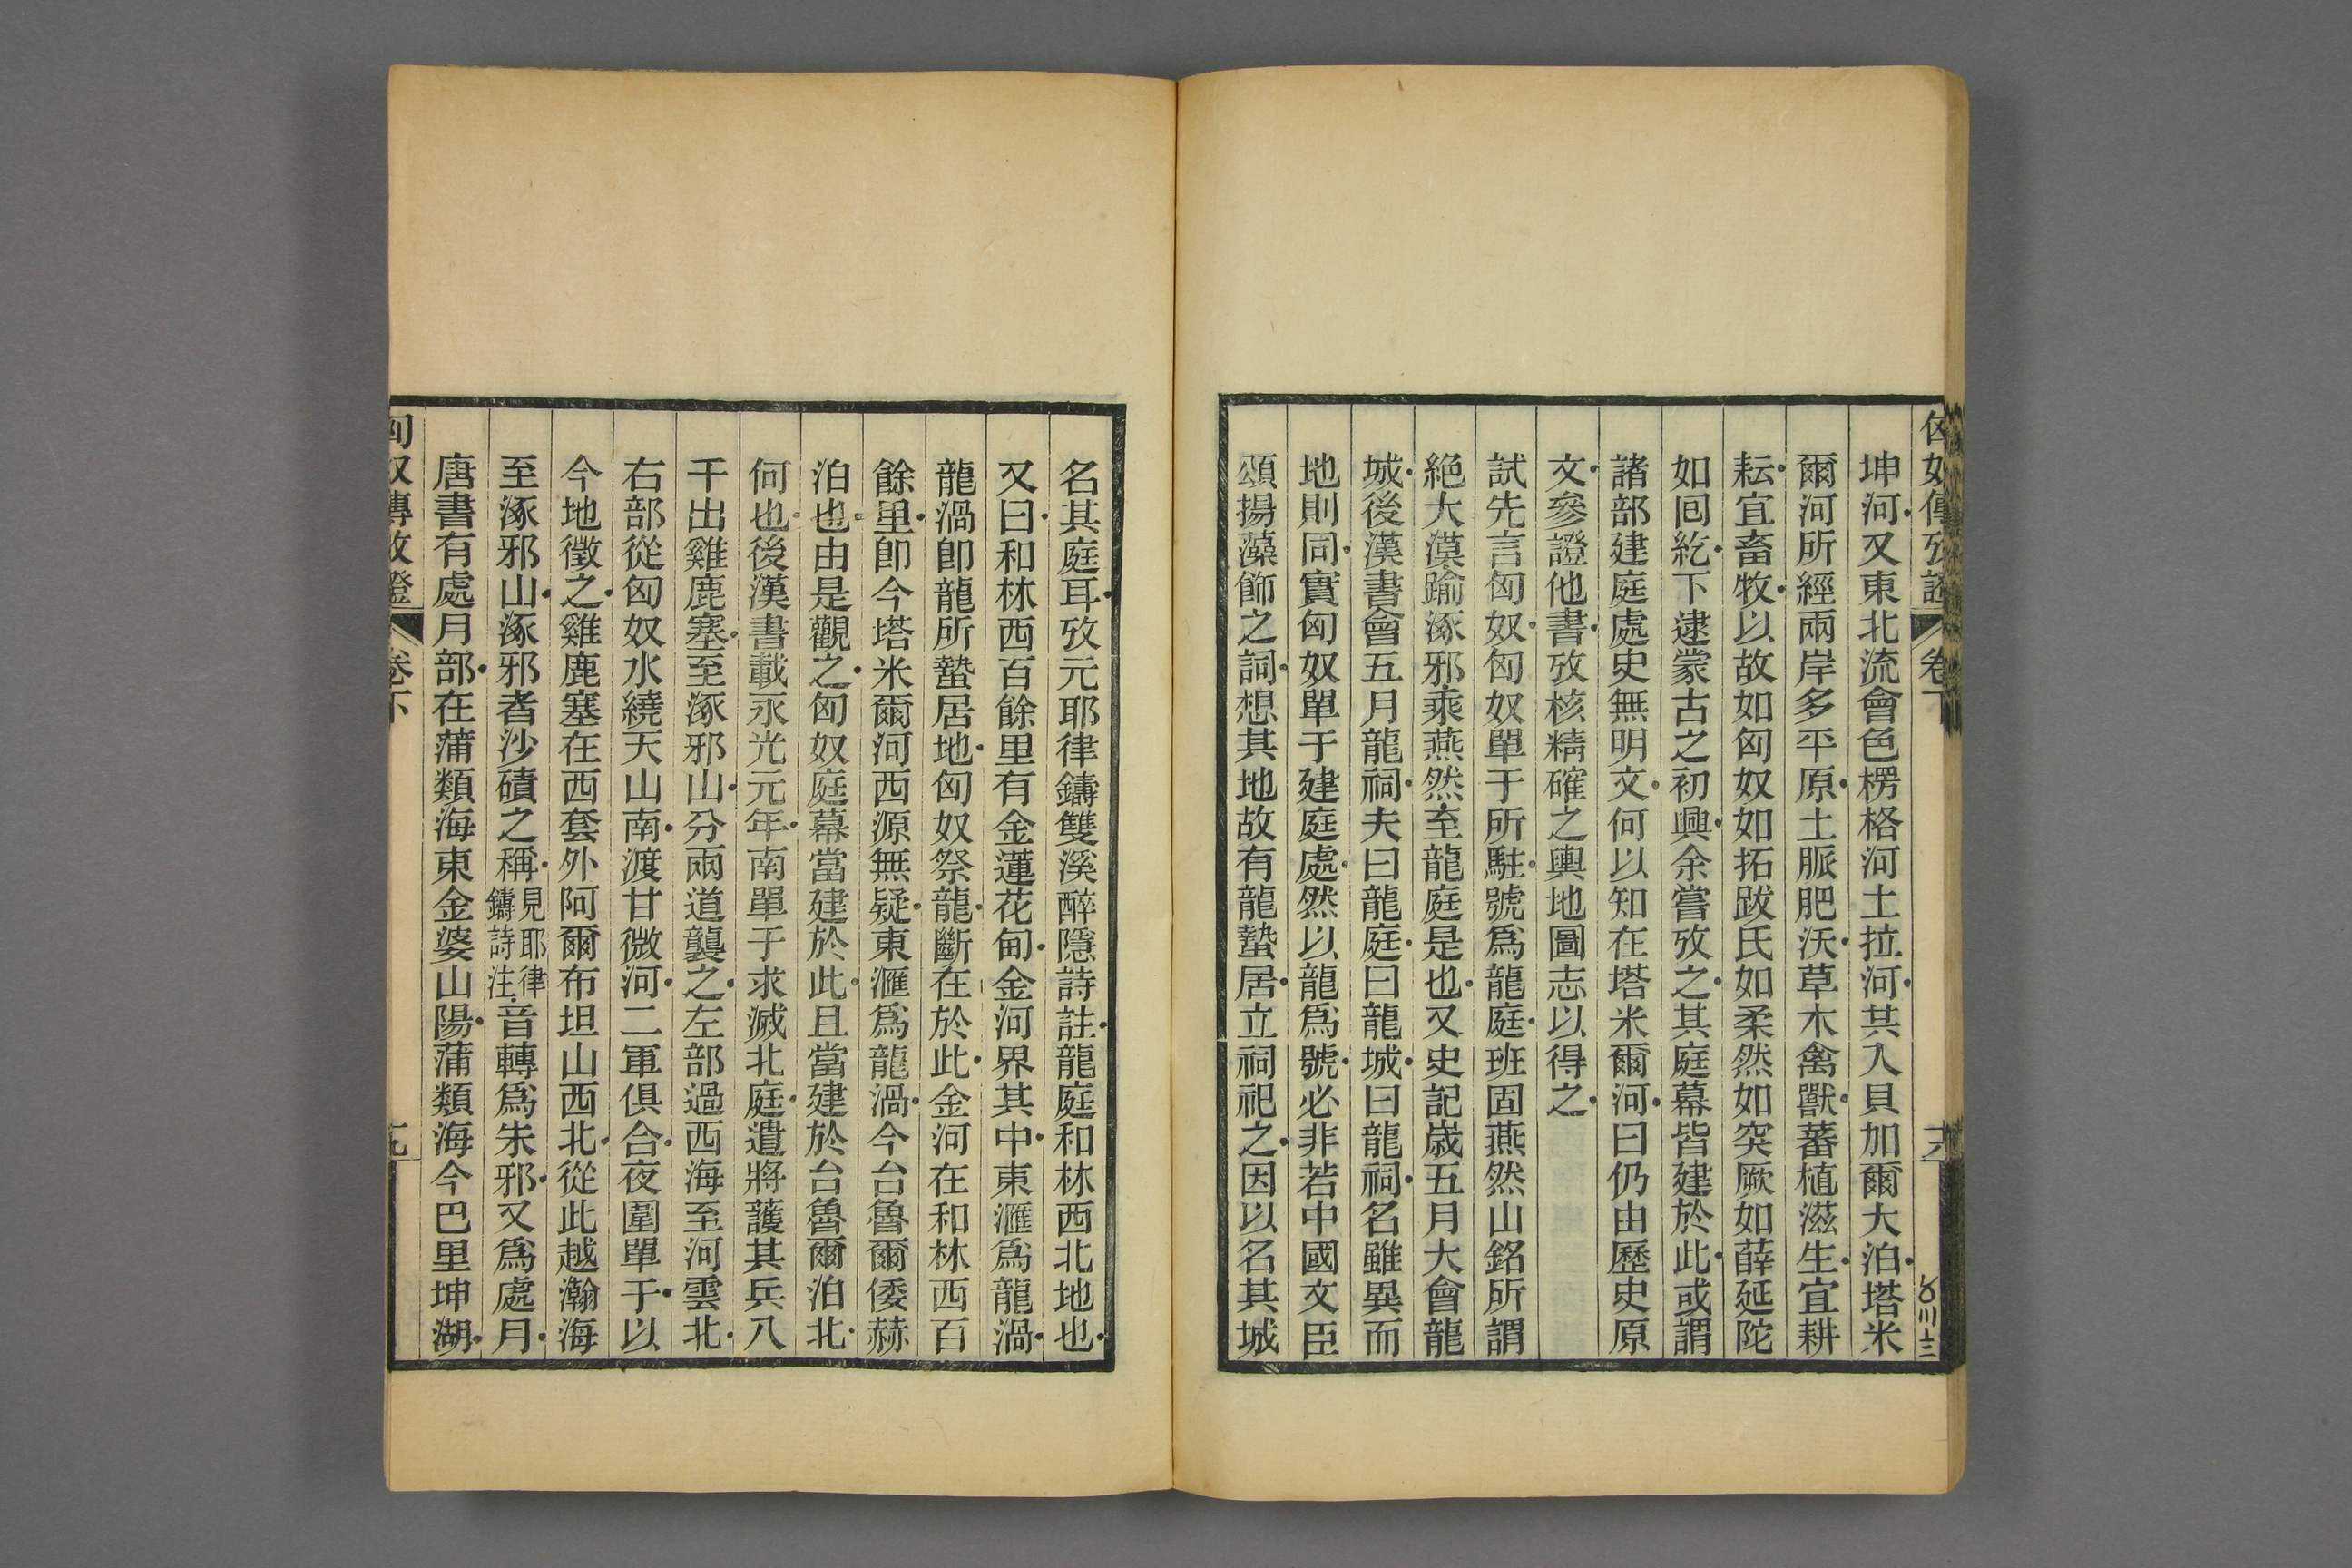 匈奴傳攷證 卷下 十六
坤河又東北流會色楞格河土拉河共入貝加爾大泊塔米
爾河所經兩岸多平原土脈肥沃草木禽獸蕃植滋生宜耕
耘宜畜牧以故如匈奴如拓跋氏如柔然如突厥如薛延陀
如回紇下逮蒙古之初興余嘗攷之其庭幕皆建於此或謂
諸部建庭處史無明文何以知在塔米爾河曰仍由歷史原
文參證他書攷核精確之輿地圖志以得之
試先言匈奴匈奴單于所駐號爲龍庭班固燕然山銘所謂
絕大漠踰涿邪乘燕然至龍庭是也又史記歲五月大會龍
城後漢書會五月龍祠夫曰龍庭曰龍城曰龍祠名雖異而
地則同實匈奴單于建庭處然以龍爲號必非若中國文臣
頌揚藻飾之詞想其地故有龍蟄居立祠祀之因以名其城
名其庭耳攷元耶律鑄雙溪醉隱詩註龍庭和林西北地也
又曰和林西百餘里有金蓮花甸金河界其中東滙爲龍渦
龍渦卽龍所蟄居地匈奴祭龍斷在於此金河在和林西百
餘里卽今塔米爾河西源無疑東滙爲龍渦今台魯爾倭赫
泊也由是觀之匈奴庭幕當建於此且當建於台魯爾泊北
何也後漢書載永光元年南單于求滅北庭遣將護其兵八
千出雞鹿塞至涿邪山分兩道襲之左部過西海至河雲北
右部從匈奴水繞天山南渡甘微河二軍俱合夜圍單于以
今地徵之雞鹿塞在西套外阿爾布坦山西北從此越瀚海
至涿邪山涿邪者沙磧之稱見耶律鑄詩注音轉爲朱邪又爲處月
唐書有處月部在蒲類海東金婆山陽蒲類海今巴里坤湖
匈奴傳攷證 卷下